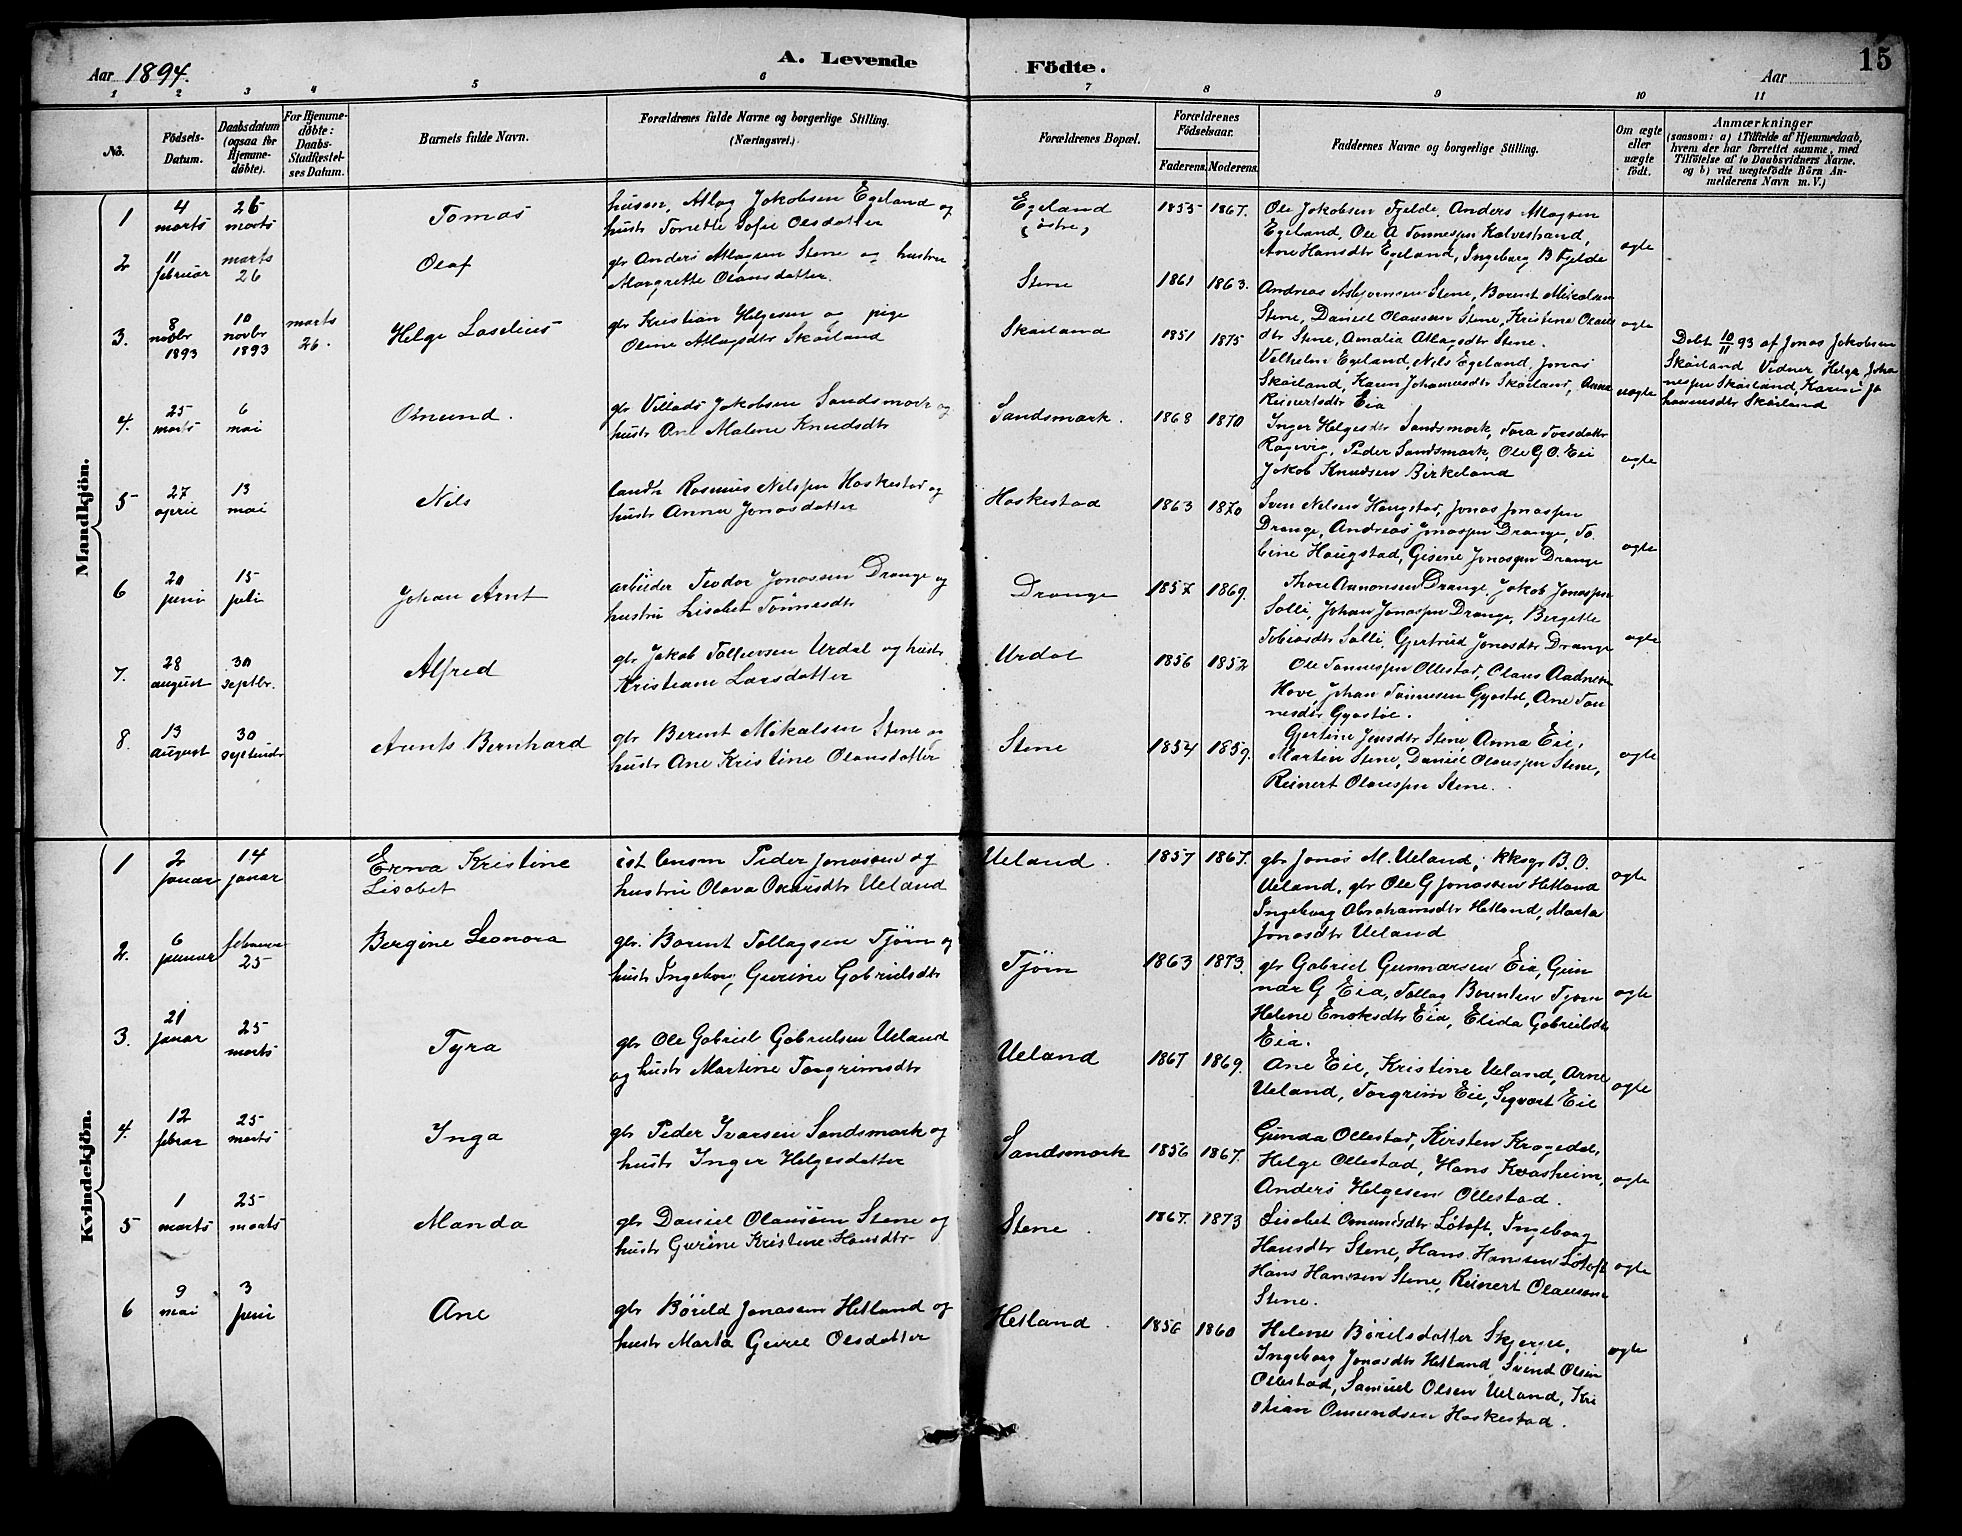 Aar 1894.
A. Levende
Födte.
Aar
15
1 2 3 4 5 6 7 8 9 10 11
No.
Födsels-
Datum.
Daabsdatum
(ogsaa for
Hjemme-
döbte).
For Hjemme-
døbte:
Daabs-
Stadfæstel-
ses Datum.
Barnets fulde Navn.
Forældrenes fulde Navne og borgerlige Stilling.
(Næringsvei.)
Forældrenes Bopæl.
Forældrenes
Födselsaar.
Faderens. Moderens.
Faddernes Navne og borgerlige Stilling.
Om ægte
eller
uægte
födt.
Anmærkninger
(saasom: a) i Tilfælde af Hjemmedaab,
hvem der har forrettet samme, med
Tilföielse af to Daabsvidners Navne.
og b) ved uægtefödte Börn An-
melderens Navn m. V.)
Mandkjön.
1
4
marts
26
marts
Tomas
husm. Atlag Jakobsen Egeland og
hustr Tonette Sofie Olsdatter
Egeland
(østre)
1855 1867.
Ole Jakobsen Fjelde, Anders Atlagsen
Egeland, Ole A Tønnespn Kalvestrand,
Ane Hansdtr Egeland, Ingeborg B Fjelde
ægte
2
11
februar
marts
26
Olaf
gbr Anders Atlagsen Stene og hustru
Margrette Olausdatter.
Stene
1861 1863.
Andreas Asbjørnsen Stene, Børent Mikalsen
Stene, Daniel Olausen Stene, Kristine Olaus
dtr Stene, Amalia Atlagsdtr Stene.
ægte
3.
8
novbr
1893
10
novbr
1893
marts
26.
Helge Laselius
gbr Kristian Helgesen og pige
Oline Atlagsdtr Skåiland
Skåiland
1851 1875
Velhelm Egeland, Nils Egeland, Jonas
Skåiland, Karen Johannesdtr Skåiland, Anna
Reinertsdtr Eia
uægte
Døbt 10/11 93 af Jonas Jakobsen
Skåiland Vidner Helge Joha
nespn Skåiland, Karen Jo
hannesdtr Skåiland
4.
25
marts
6
mai
Omund.
gbr Villads Jakobsen Sandsmark og
hustr Ane Malene Knudsdtr
Sandsmark.
1868 1870
Inger Helgesdtr Sandsmark, Tora Torsdatter
Rægevig, Peder Sandsmark, Ole G O. Eei
Jakob Knudsen Birkeland
ægte
5
27
april
13
mai
Nils
landh Rasmus Nilspn Haskestad og
hustr Anna Jonasdatter
Haskestad
1863 1870
Sven Nilsen Haugstad, Jonas Jonaspn
Drange, Andreas Jonaspn Drange, To
bine Haugstad, Gisine Jonaspn Drange
ægte
6
20
juni
15
juli
Johan Arnt
arbeider Teodor Jonassen Drange og
hustru Lisabet Tønnesdtr
Drange
1857 1869.
Thore Aanonsen Drange, Jakob Jonaspn
Salli, Johan Jonaspn Drange, Bergette
Tobiasdtr Salli, Gjertrud Jonasdtr Drange
ægte
7.
28
august
30
septbr.
Alfred
gbr Jakob Tollevsen Urdal og hustr.
Kristiane Larsdatter
Urdal
1856 1852
Ole Tønnespn Ollestad, Claus Aadnesen
Hove, Johan Tønnesen Gyastøl, Ane Tøn
nesdtr Gyastøl.
8.
13
august
30
september
Arnts Bernhard
gbr Berent Mikalsen Stene og
hustr Ane Kristine Olausdatter
Stene
1854 1859.
Gjertine Jensdtr Stene Anna Eie,
Martin Stene, Daniel Olauspn Stene,
Reinert Olauspn Stene.
ægte
Kvindekjön.
1
2
januar
14
januar
Erna Kristine
Lisabet
ist lensm Peder Jonassen og
hustru Olava Omundsdtr Ueland
Ueland.
1857 1867.
gbr Jonas M. Ueland, kksgr B. O.
Ueland, gbr Ole G Jonassen Hetland
Ingeborg Abrahamsdtr Hetland, Marta
Jonasdtr Ueland
ægte
2.
6
januar
februar
25
Bergine Leonora
gbr. Børent Tollagsen Tjørn og
hustr Ingeborg Gurine Gabrielsdtr
Tjørn
1863 1873.
gbr Gabriel Gunnarsen Eia, Gun
nar G Eia, Tollag Børentsen Tjørn
Helene Enoksdtr Eia, Elida Gabrielsdtr
Eia.
ægte
3.
21
januar
25
marts
Tyra
gbr Ole Gabriel Gabrielsen Ueland
og hustr Martine Torgrimsdtr
Ueland
1867 1869.
Ane Eie, Kristine Ueland, Arne
Ueland, Torgrim Eie, Sigvart Eie
ægte
4.
12
febrar
25
marts
Inga
gbr Peder Ivarsen Sandsmark og
hustr Inger Helgesdatter
Sandsmark
1856 1867.
Gunda Ollestad, Kirsten Kragedal,
Helge Ollestad, Hans Kvasheim,
Anders Helgesen Ollestad.
ægte
5
1
marts
25
marts
Manda
gbr Daniel Olausen Stene og
hustr Gurine Kristine Hansdtr
Stene.
1867. 1873
Lisabet Omundsdtr Løtoft, Ingeborg
Hansdtr Stene, Hans Hansen Løtoft
Hans Hanssen Stene, Reinert Olausen
Stene.
ægte
6
9
mai
3
juni
Ane
gbr Børild Jonassen Hetland og
hustr Marta Gurie Olsdatter
Hetland.
1856 1860
Helene Børilsdatter Skjerpe,
Ingeborg Jonasdtr Hetland, Svend Olsen
Ollestad, Samuel Olsen Ueland, Kri
stian Omundsen Haskestad.
ægte